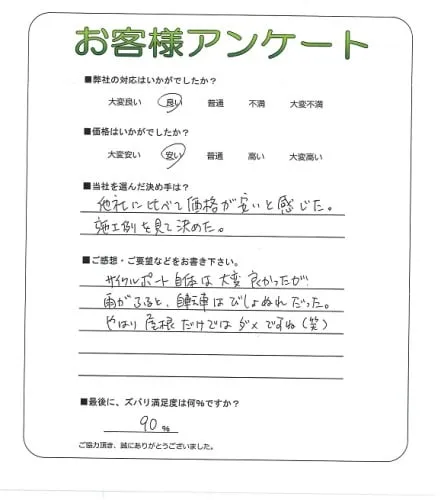 お客様アンケート
■弊社の対応はいかがでしたか?
大変良い 良い 普通 不満 大変不満
■価格はいかがでしたか?
大変安い 安い 普通 高い 大変高い
■当社を選んだ決め手は?
他社に比べて価格が安いと感じた。
施工例を見て決めた。
■ご感想・ご要望などをお書き下さい。
サイクルポート自体は大変良かったが
雨がふると、自転車はびしょぬれだった。
やはり屋根だけではダメですね(笑)
■最後に、ズバリ満足度は何%ですか?
90 %
ご協力頂き、誠にありがとうございました。